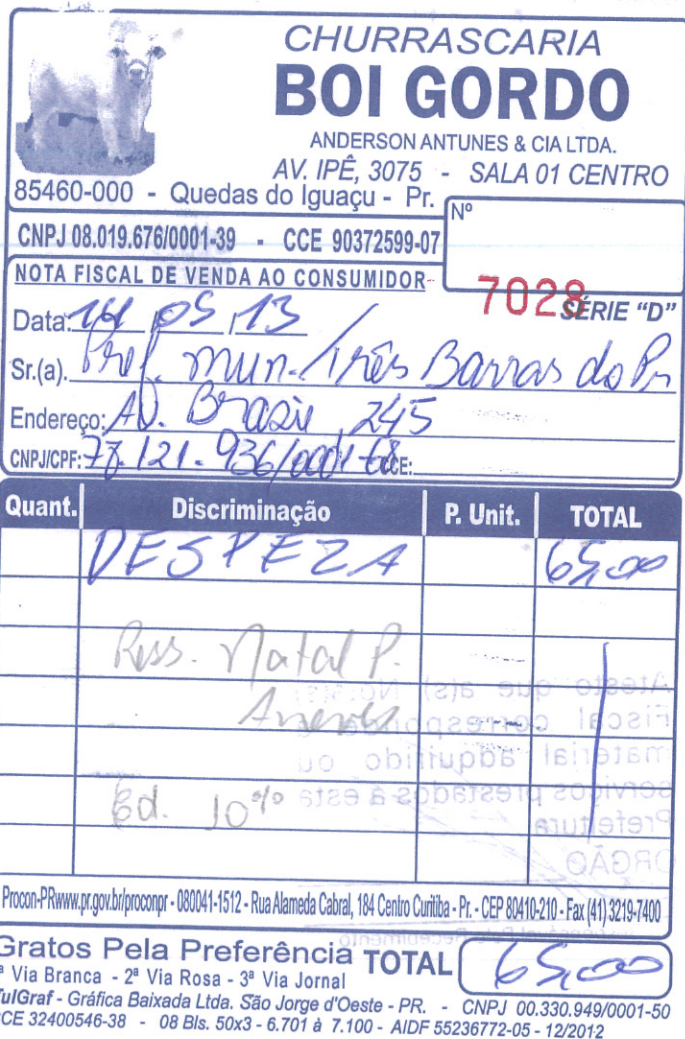 CHURRASCARIA
BOI GORDO
ANDERSON ANTUNES & CIA LTDA.
AV. IPÊ, 3075 - SALA 01 CENTRO
85460-000 - Quedas do Iguaçu - Pr.
CNPJ 08.019.676/0001-39 - CCE 90372599-07
Nº
7028
SÉRIE "D"
NOTA FISCAL DE VENDA AO CONSUMIDOR
Data: 05 13
Sr.(a). Pref. mun. Três Barras do Pr
Endereço: AV. Brasil, 245
CNPJ/CPF: 78.121.936/0001-68 CCE:
Quant. Discriminação P. Unit. TOTAL
DESPEZA 65,00
Ress. Natal P.
Ed. 10%
Atesto que a(s) Nota(s)
Fiscal corresponde
material adquirido ou
serviços prestados a esta
Prefeitura
ORGÃO
Procon-PRwww.pr.gov.br/proconpr - 080041-1512 - Rua Alameda Cabral, 184 Centro Curitiba - Pr. - CEP 80410-210 - Fax (41) 3219-7400
Gratos Pela Preferência TOTAL 65,00
ª Via Branca - 2ª Via Rosa - 3ª Via Jornal
TulGraf - Gráfica Baixada Ltda. São Jorge d'Oeste - PR. - CNPJ 00.330.949/0001-50
CCE 32400546-38 - 08 Bls. 50x3 - 6.701 à 7.100 - AIDF 55236772-05 - 12/2012